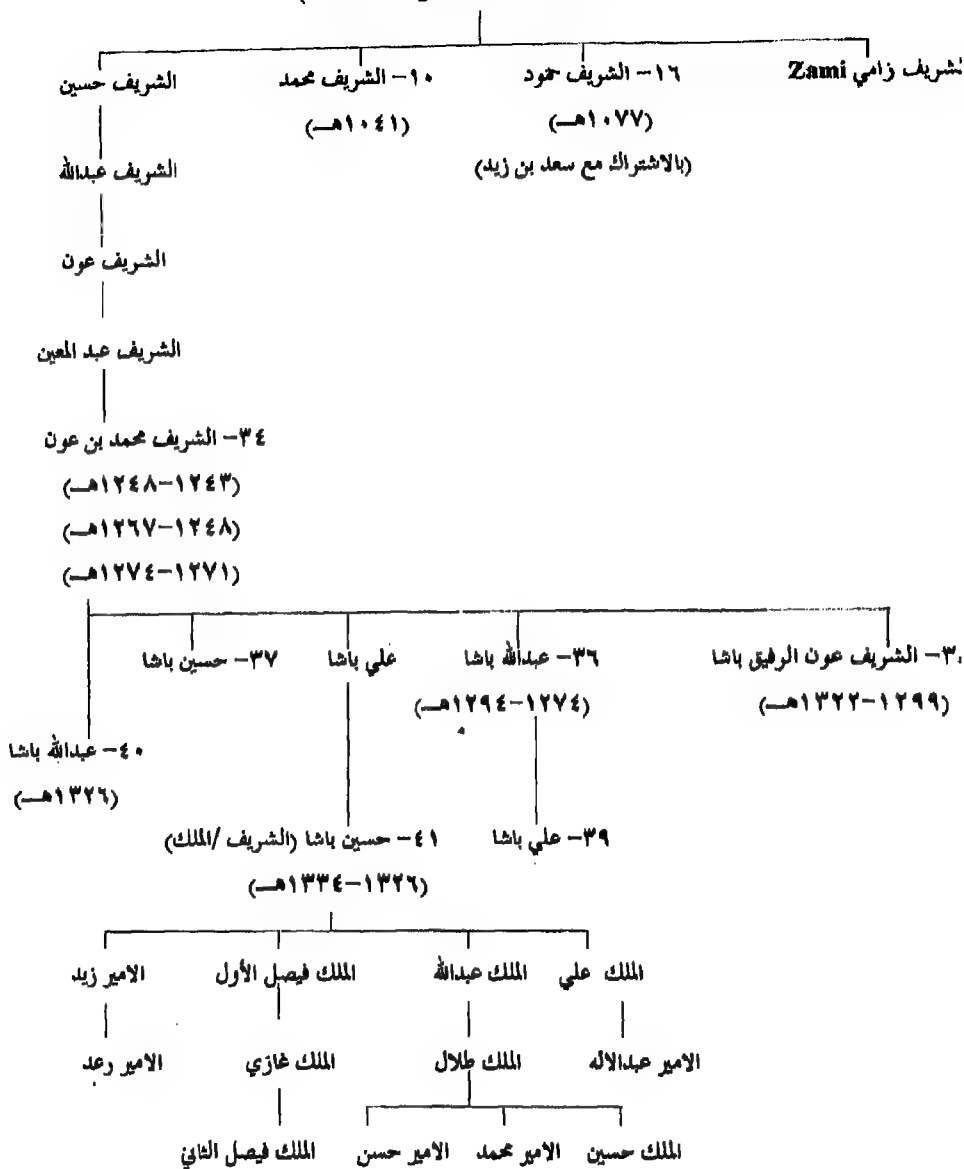 لشريف زامي Zami
١٦- الشريف حمود
(١٠٧٧هـ)
(بالاشتراك مع سعد بن زيد)
١٠- الشريف محمد
(١٠٤١هـ)
الشريف حسين
الشريف عبدالله
الشريف عون
الشريف عبد المعين
٣٤- الشريف محمد بن عون
(١٢٤٣-١٢٤٨هـ)
(١٢٤٨-١٢٦٧هـ)
(١٢٧١-١٢٧٤هـ)
- الشريف عون الرفيق باشا
(١٢٩٩-١٣٢٢هـ)
٣٦- عبدالله باشا
(١٢٧٤-١٢٩٤هـ)
علي باشا
٣٧- حسين باشا
٤٠- عبدالله باشا
(١٣٢٦هـ)
٣٩- علي باشا
٤١- حسين باشا (الشريف /الملك)
(١٣٢٦-١٣٣٤هـ)
الملك علي الملك عبدالله الملك فيصل الأول الامير زيد
الامير عبدالاله الملك طلال الملك غازي الامير رعد
الملك حسين الامير محمد الامير حسن الملك فيصل الثاني